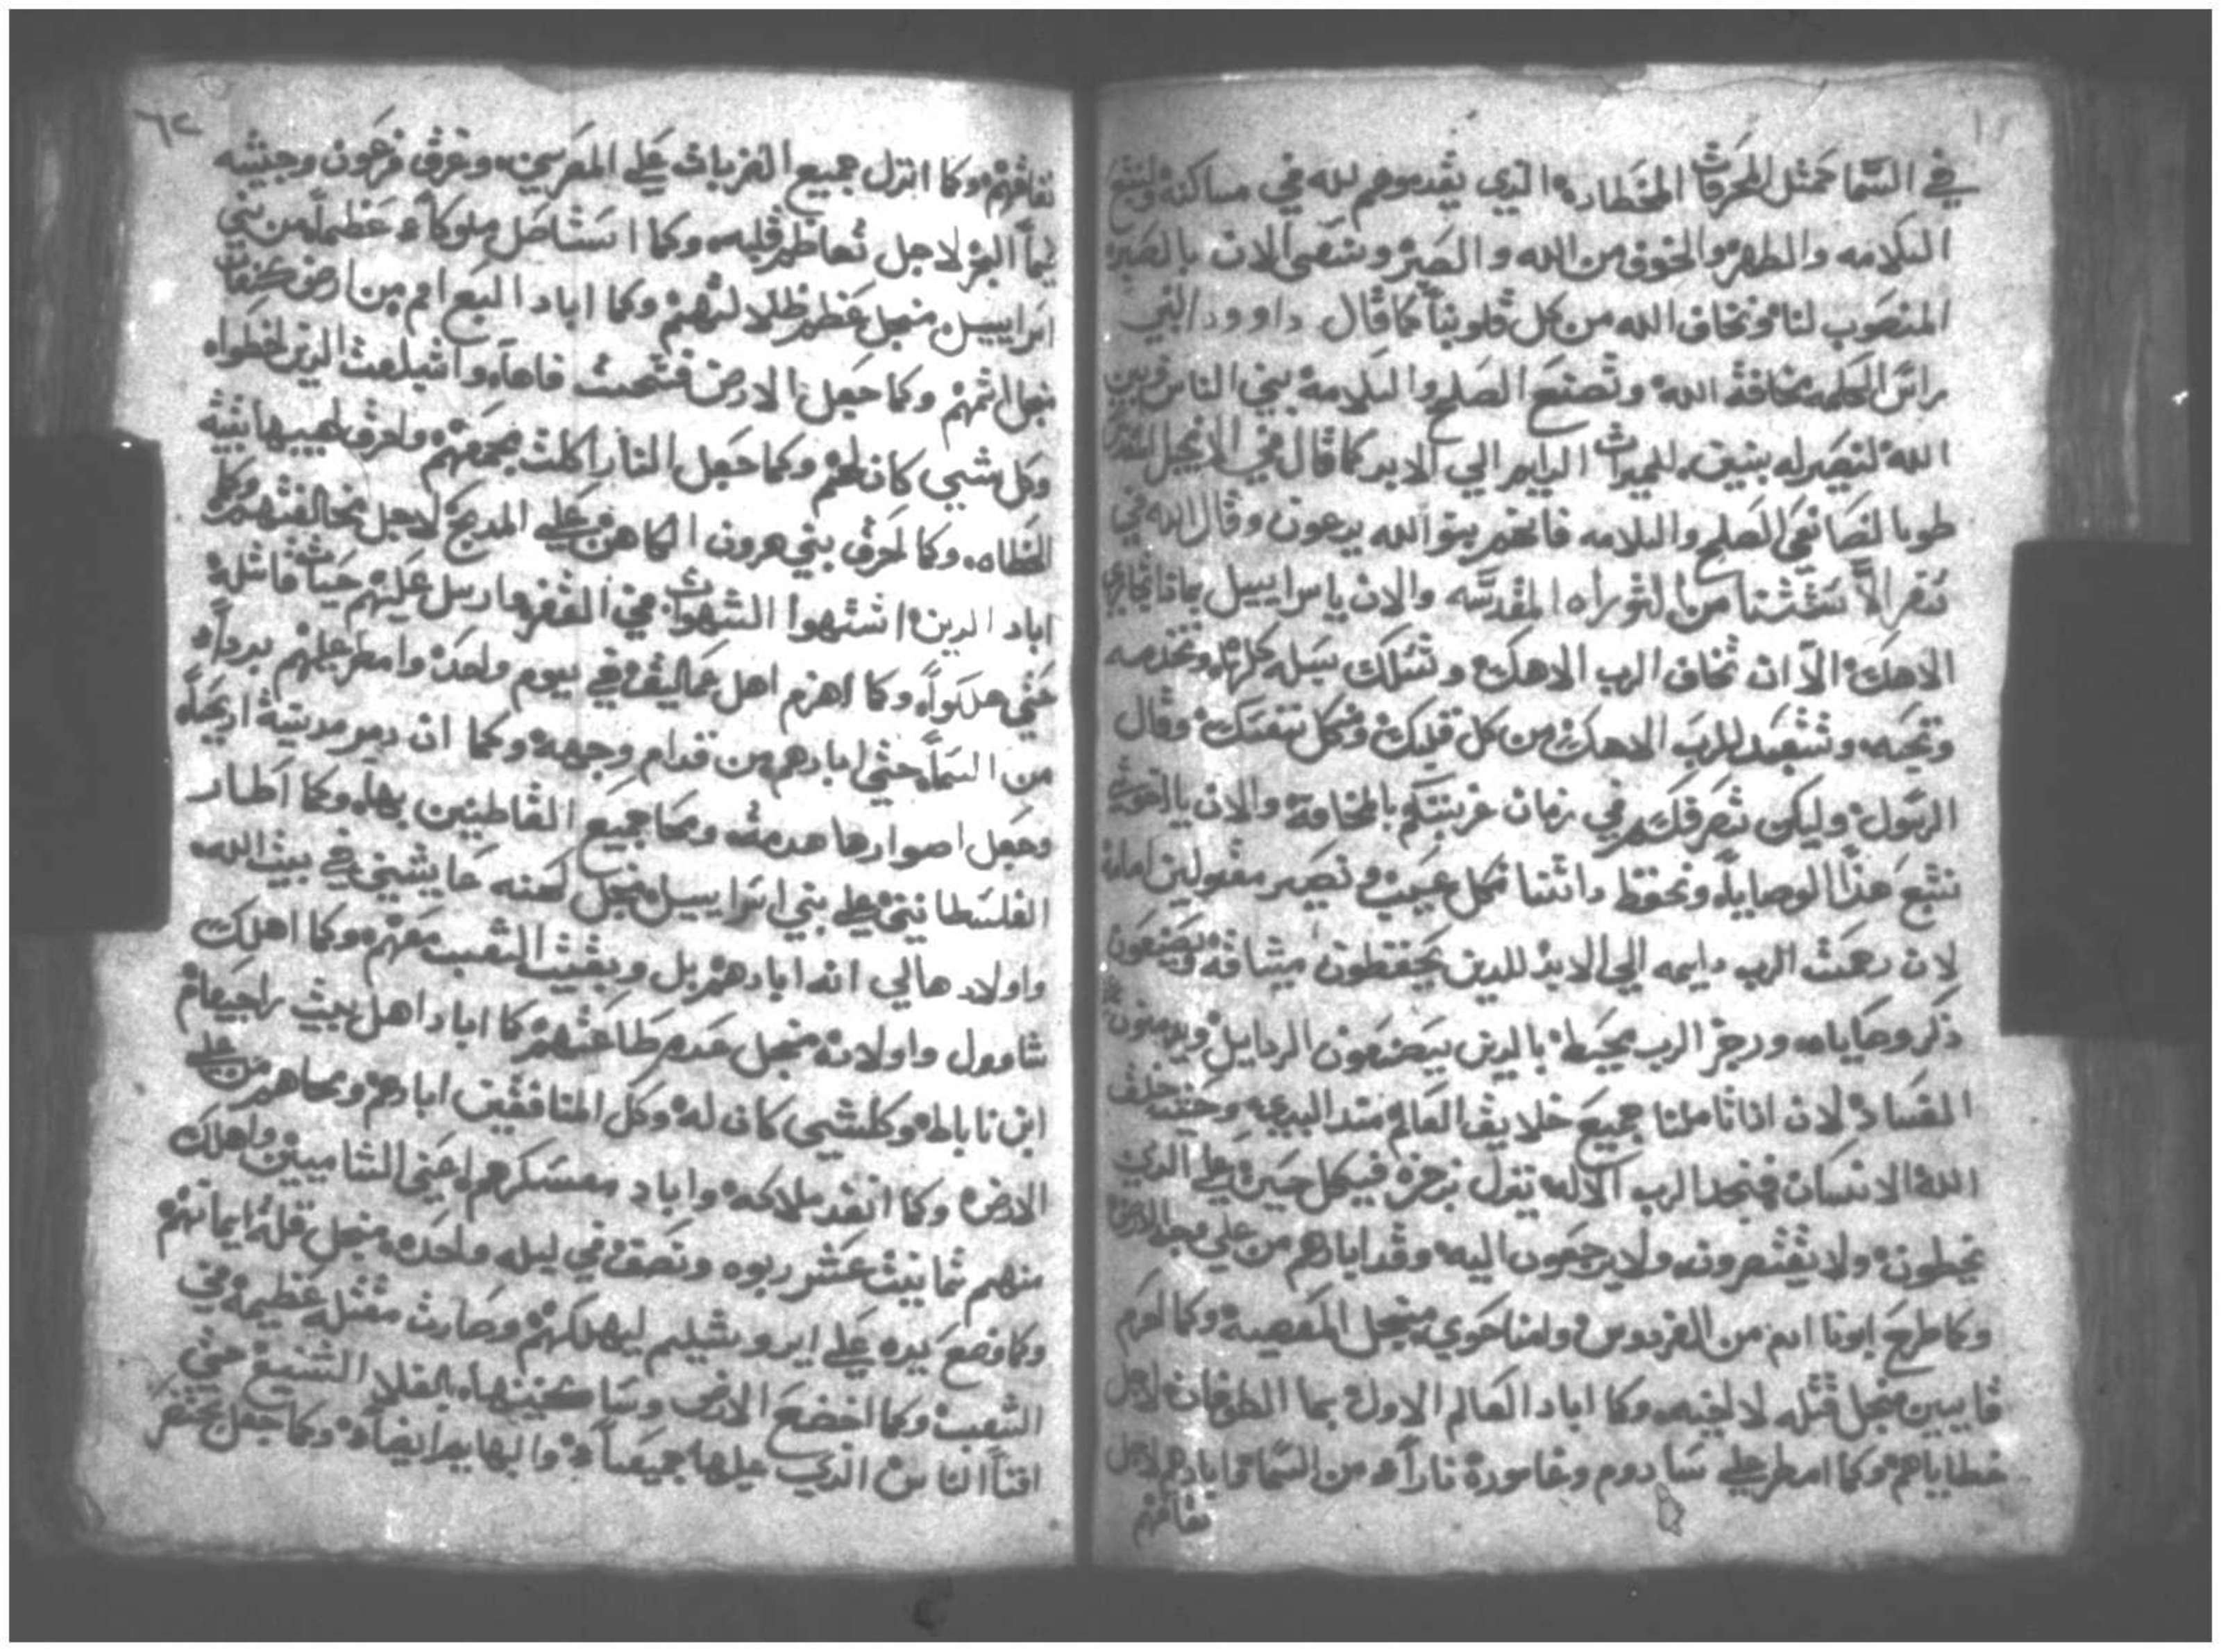 في السما كمثل المحرقات المختاره الذي يقدموهم لله في مساكنه ولنتبع
السلامه والطهر والخوف من الله والصبر ونتصى الان بالصبر
المنصوب لنا ونخاف الله من كل قلوبنا كما قال داوود النبي
راس الحكمه مخافة الله وتصنع الصلح والسلامه بين الناس وبين
الله لنصير له بنين للميراث الدايم الي الابد كما قال في الانجيل المقدس
طوبا لصانعي الصلح والسلامه فانهم بنوا الله يدعون وقال الله في
سفر الاستثنا من التوراه المقدسه والان ياسراييل
الاهك الا ان تخاف الرب الاهك وتسلك سبله كلها وتخدمه
وتحبه وتتعبد للرب الاهك من كل قلبك وكل نفسك وقال
الرسول وليكن تصرفكم في زمان غربتكم بالمخافة والان يااخوتي
نتبع هذا الوصايا ونحفظ داتنا بكل عيب ونصير مقبولين امامه
لان رحمت الرب دايمه الي الابد للدين يحفظون ميتاقه ويصنعون
ذكر وصاياه ورجز الرب يحيط بالدين يصنعون الردايل ويدمنون
الفساد لان اذا تاملنا جميع خلايق العالم مند البديه وحيت خلف
الله الانسان فنجد الرب الاله ينزل برجزه في كل حين علي الدي
يخطون ولا يقتصرون ولا يرجعون اليه وقد ابادهم من علي وجه الارض
وكما طرح ابونا ادم من الفردوس وامنا حوي منجل المعصية وكما احرم
قايين منجل قتله لاخيه وكما اباد العالم الاول بما الطوفان لاجل
خطاياهم وكما امطر علي سادوم وغامورة نارا من السما وابادهم لاجل
نفاقهم
٦٢
نفاقهم وكما انزل جميع الضربات علي المصريين وغرق فرعون وجيشه
بما البحر لاجل تعاظم قلبه وكما استاصل ملوكا عظما من بني
اسراييل منجل عظم ظلالتهم وكما اباد السبع امم من ارض كنعان
نجل اثمهم وكما جعل الارض فتحت فاها وابتلعت الدين اخطوا
وكل شيي كان لهم وكما جعل النار اكلت مجمعهم واحرق لهيبها بقية
الخطاه وكما احرق بني هرون الكاهن علي المدبح لاجل مخالفتهم وكما
اباد الدين اشتهوا الشهوات في القفر وارسل عليهم حيات قاتلة
حتي هلكوا وكما اهزم اهل عماليق في يوم واحد وامطر عليهم بردا
من السما حتي ابادهم من قدام وجهه وكما ان دمر مدينة اريحا
وجعل اصوارها هدمت ومحا جميع القاطنين بها وكما اطار
الفلسطانيين علي بني اسراييل منجل لعنه في بيت الله
واولاد هالي انه ابادهم بل وبقيت الشعب معهم وكما اهلك
شاوول واولاده منجل عدم طاعتهم كما اباد اهل بيت راجيعام
ابن ناباط وكلشي كان له وكل المنافقين ابادهم ومحاهم من علي
الارض وكما انفد ملاكه واباد معسكرهم اعني الشاميين واهلك
منهم تمانيت عشر ربوه ونصف في ليله واحده منجل قلة ايمانهم
وكما وضع يده علي ايروشليم ليهلكهم وصارت مقتله عظيمه في
الشعب وكما اخضع الارض وساكنينها بالغلا الشنيع حتي
افنا الناس الذي عليها جميعا والبهايم ايضا وكما جعل بختنصر